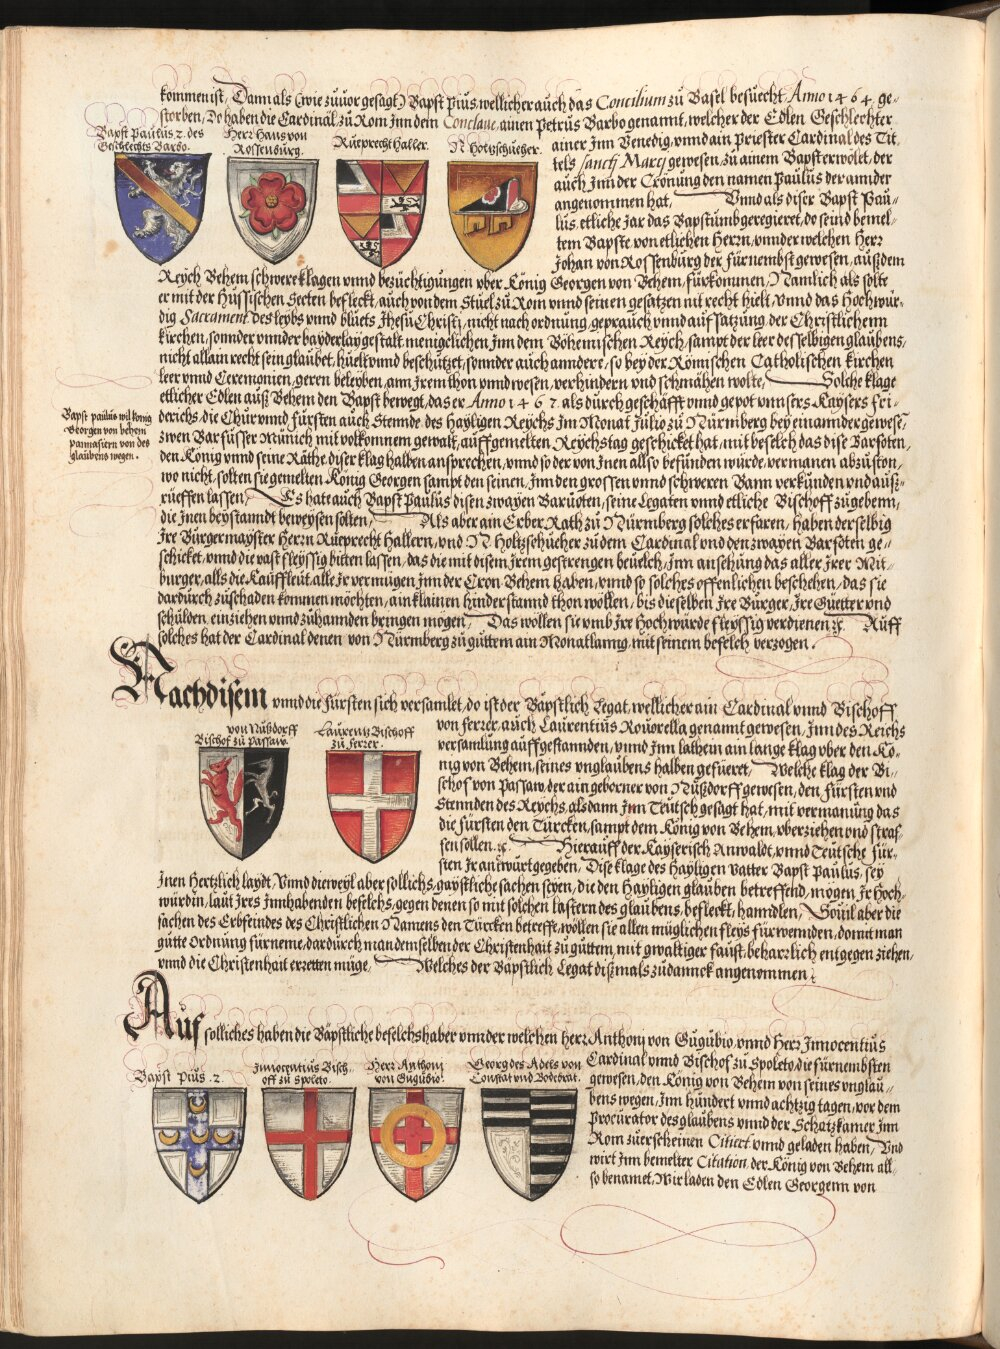 kommen ist, Damals (wie zuuor gesagt) Bapst Pius, wellicher auch das Concilium zu Basel besuecht, Anno 1464. ge-
storben, Do haben die Cardinal zu Rom Jnn dem Conclaue, ainen Petrus Barbo genannt, welcher der Edlen Geschlechter
Bapst Paulus 2. des
Geschlechts Barbo.
Herr Hans von
Rossenburg.
Rueprecht Haller.
N Holtzschuecher.
ainer Jnn Venedig, vnnd ain Priester Cardinal des Tit-
tels sancti Marci gewesen, zu ainem Bapst erwölet, der
auch Jnn der Crönung den namen Paulus der annder
angenommen hat, Vnnd als diser Bapst Pau-
lus, etliche Jar das Bapstumb geregieret, do seind bemel-
tem Bapste, von etlichen Herrn, vnnder welchen Herr
Johan von Rossenburg der fürnembst gewesen, auß dem
Reych Behem schwere klagen vnnd bezüchtigungen vber König Georgen von Behem, fürkommen, Namlich als solte
er mit der Hussischen Secten befleckt, auch von dem Stuel zu Rom vnnd seinen gesatzen nit recht hielt, Vnnd das Hochwür-
dig Sacrament des leybs vnnd bluets Jhesu Christi, nicht nach ordnung, geprauch vnnd auffsatzung der Christlichenn
kirchen, sonnder vnnder bayderlay gestalt menigclichen Jnn dem Böhemischen Reych, sampt der leer desselbigen glaubens,
nicht allain recht sein glaubet, hüelt vnnd beschutzet, sonnder auch anndere, so bey der Römischen Catholischen kirchen
leer vnnd Ceremonien, geren beleyben, ann Jrem thon vnnd wesen, verhindern vnd schmähen wolte, Solche klage
etlicher Edlen auß Behem den Bapst bewegt, das er Anno 1467. als durch geschäfft vnnd gepot vnnsers Kaysers Fri-
derichs, die Chur vnnd Fürsten auch Stennde des Hayligen Reychs Jm Monat Julio zu Nürmberg bey einannder gewesen,
zwen Barfusser Munich mit volkomnem gewalt, auff gemelten Reychstag geschicket hat, mit befelch das dise Barfoten,
den König vnnd seine Räthe, diser klag halben ansprechen, vnnd so der von Jnen allso befunden würde, vermanen abzuston,
wo nicht, solten sie gemelten König Georgen sampt den seinen, Jnn den grossen vnnd schweren Bann verkunden vnd auß-
rüeffen lassen, Es hatt auch Bapst Paulus disen zwayen Barfüoten, seine Legaten vnnd etliche Bischoff zugebenn,
die Jnen beystanndt beweysen solten, Als aber ain Erber Rath zu Nürmberg solches erfaren, haben derselbig
Jre Burgermayster Herrn Rueprecht Hallern, vnd N Holtzschucher zu dem Cardinal vnd den zwayen Barfoten ge-
schicket, vnnd die vast fleyssig bitten lassen, das die mit disem Jrem gestrengen beuelch, Jnn ansehung das aller Jrer Mit-
burger, alls die Kauffleut, alle Jr vermugen Jnn der Cron Behem haben, vnnd so solches offenlichen beschehen, das sie
dardurch zuschaden kommen möchten, ain klainen hinderstannd thon wöllen, bis dieselben Jre Burger, Jre Guetter vnd
schulden, einziehen vnnd zuhannden bringen mögen, Das wollen sie vmb Jre Hochwürde fleyssig verdienen ꝛc. Auff
solches hat der Cardinal denen von Nürmberg zu guttem ain Monatlanng mit seinem befelch verzogen.
Bapst paulus wil könig
Georgen von behem
pannasieren von des
glaubens wegen.
Nach disem vnnd die Fürsten sich versamlet, do ist der Bäpstlich Legat, wellicher ain Cardinal vnnd Bischoff
von Nußdorff
Bischof zu Passaw.
Laurentz Bischoff
zu ferrer.
von Ferrer, auch Laurentius Rouorella genannt gewesen, Jnn des Reichs
versamlung auffgestannden, vnnd Jnn lathein ain lange klag vber den Kö-
nig von Behem, seines vnglaubens halben gefueret, Welche klag der Bi-
schof von Passaw, der ain geborner von Nußdorff gewesen, den Fürsten vnd
Stennden des Reychs, als dann Jnn Teutsch gesagt hat, mit vermanung das
die Fürsten den Türcken, sampt dem König von Behem, vberziehen vnd straf-
fen sollen ꝛc. Hierauff der Kayserisch Anwaldt, vnnd Teutsche Für-
sten Jr antwurt gegeben, Dise klage des Hayligen Vatter Bapst Paulus, sey
Jnen Hertzlich laydt, Vnnd dieweyl aber sollichs, gaystliche sachen seyen, die den Hayligen glauben betreffend, mögen Jr Hoch-
würdin, laut Jres Jnnhabenden befelchs, gegen denen so mit solchen lastern des glaubens, befleckt, hanndlen, Souil aber die
sachen des Erbfeindes des Christlichen Namens den Türcken betreffe, wöllen sie allen müglichen fleys fürwennden, domit man
gutte Ordnung fürneme, dardurch man demselben der Christenhait zu guttem, mit gwaltiger faust, beharrlich entgegen ziehen,
vnnd die Christenhait erretten müge, Welches der Bäpstlich Legat dißmals zudannck angenommen.
Auf solliches haben die Bäpstliche befelchshaber vnnder welchen Herr Anthony von Gugubio, vnnd Herr Innocentius
Bapst Pius .2.
Jnnocentius Bisch-
off zu Spoleto.
Herr Anthoni
von Gugubio.
Georg des Adels von
Constat vnd Bodebrat.
Cardinal vnnd Bischof zu Spoleto, die fürnembsten
gewesen, den König von Behem von seines vnglau-
bens wegen, Jnn hundert vnnd achtzig tagen, vor dem
Procurator des glaubens vnnd der Schatzkamer Jnn
Rom zuerscheinen Citiert vnnd geladen haben, Vnd
wirt Jnn bemelter Citation, der König von Behem all-
so benamet, Wir laden den Edlen Georgenn von